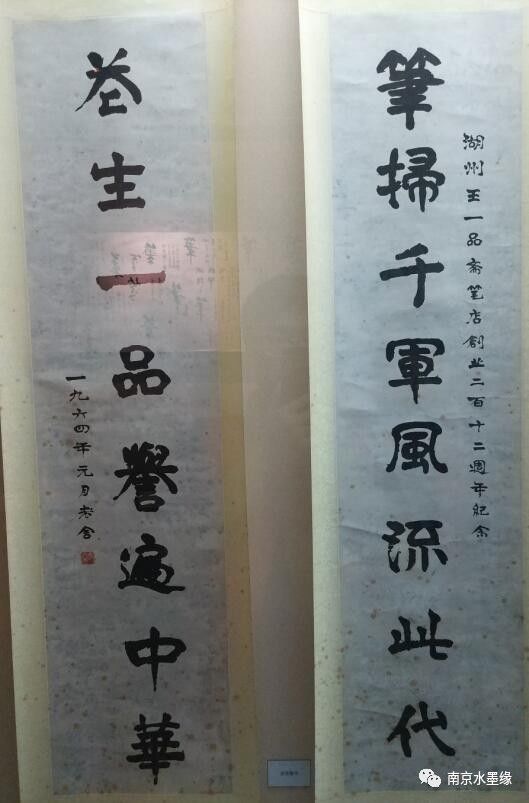 筆掃千軍風流此代
湖州王一品斋笔店創业二百十二週年紀念
花生一品譽遍中華
一九六四年元月老舍
南京水墨缘